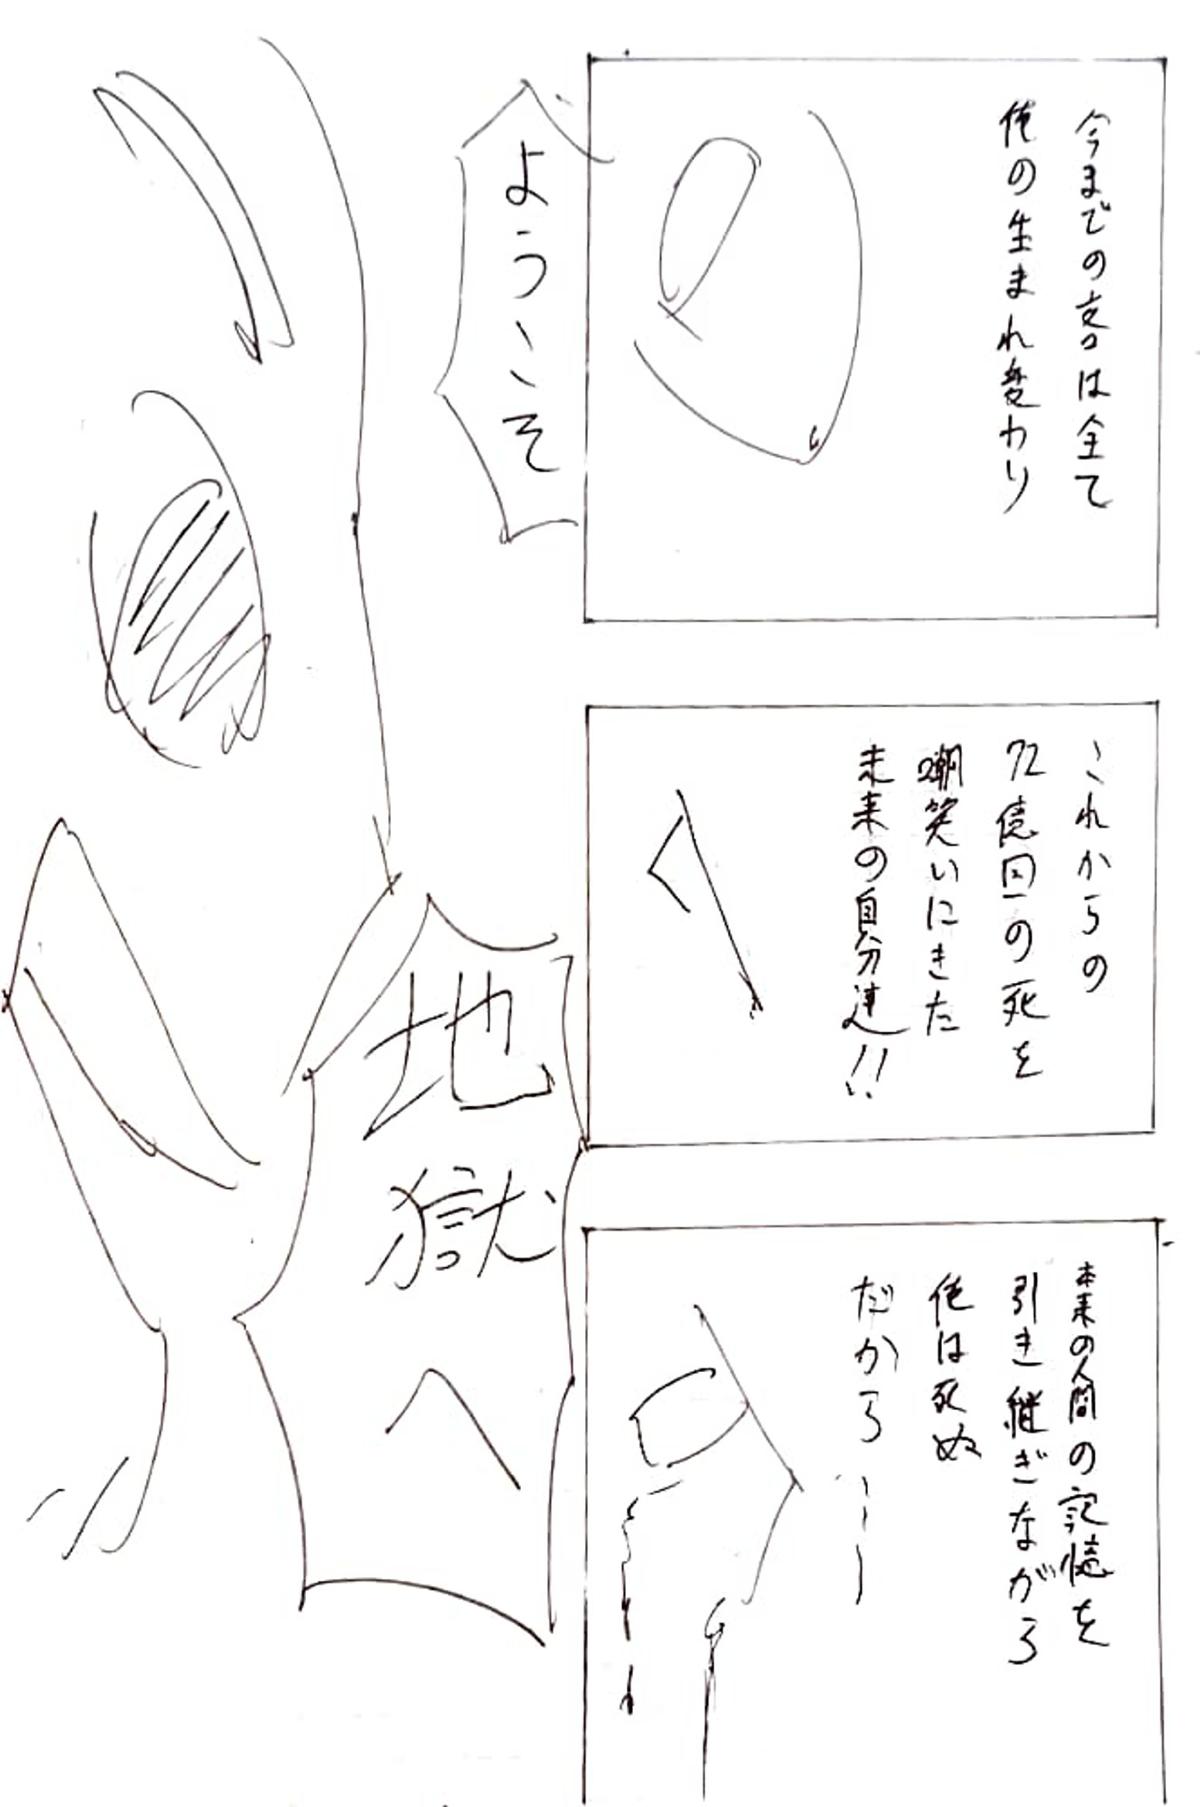 今までの客は全て
俺の生まれ変わり
これからの
72億回の死を
嘲笑いにきた
未来の自分達!!
未来の人間の記憶を
引き継ぎながら
俺は死ぬ
だから
こい
ようこそ
地獄へ